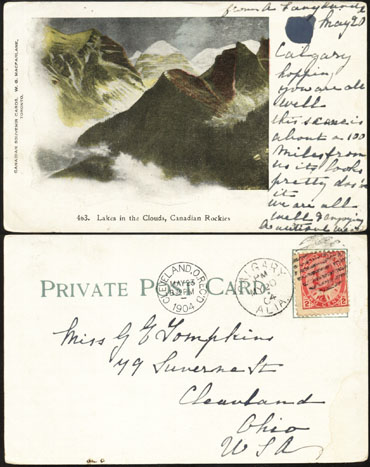 from A
May 20
Calgary
hopping
you are all
well
this scene is
about a 100
Miles from
us its looks
pretty
it
we are all
well & enjoying
CANADIAN SOUVENIR CARDS. W. G. MACFARLANE,
TORONTO.
463. Lakes in the Clouds, Canadian Rockies
PRIVATE POST CARD
CLEVELAND, O. REC'D
MAY 23
1904
CALGARY
PM
MY 20
04
ALTA.
Miss G E Tompkins
79 Suverne St
Cleaveland
Ohio
U S A